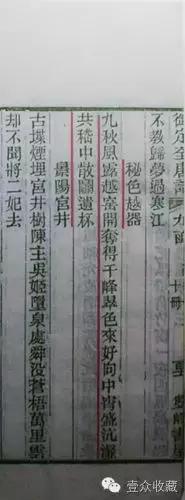 御定全唐詩
不教歸夢過寒江
秘色越器
九秋風露越窯開奪得千峰翠色來好向中宵盛沆瀣
共嵇中散鬭遺杯
景陽宮井
古堞煙埋宮井樹陳主吳姬墮泉處舜没蒼梧萬里雲
却不聞將二妃去
壹众收藏